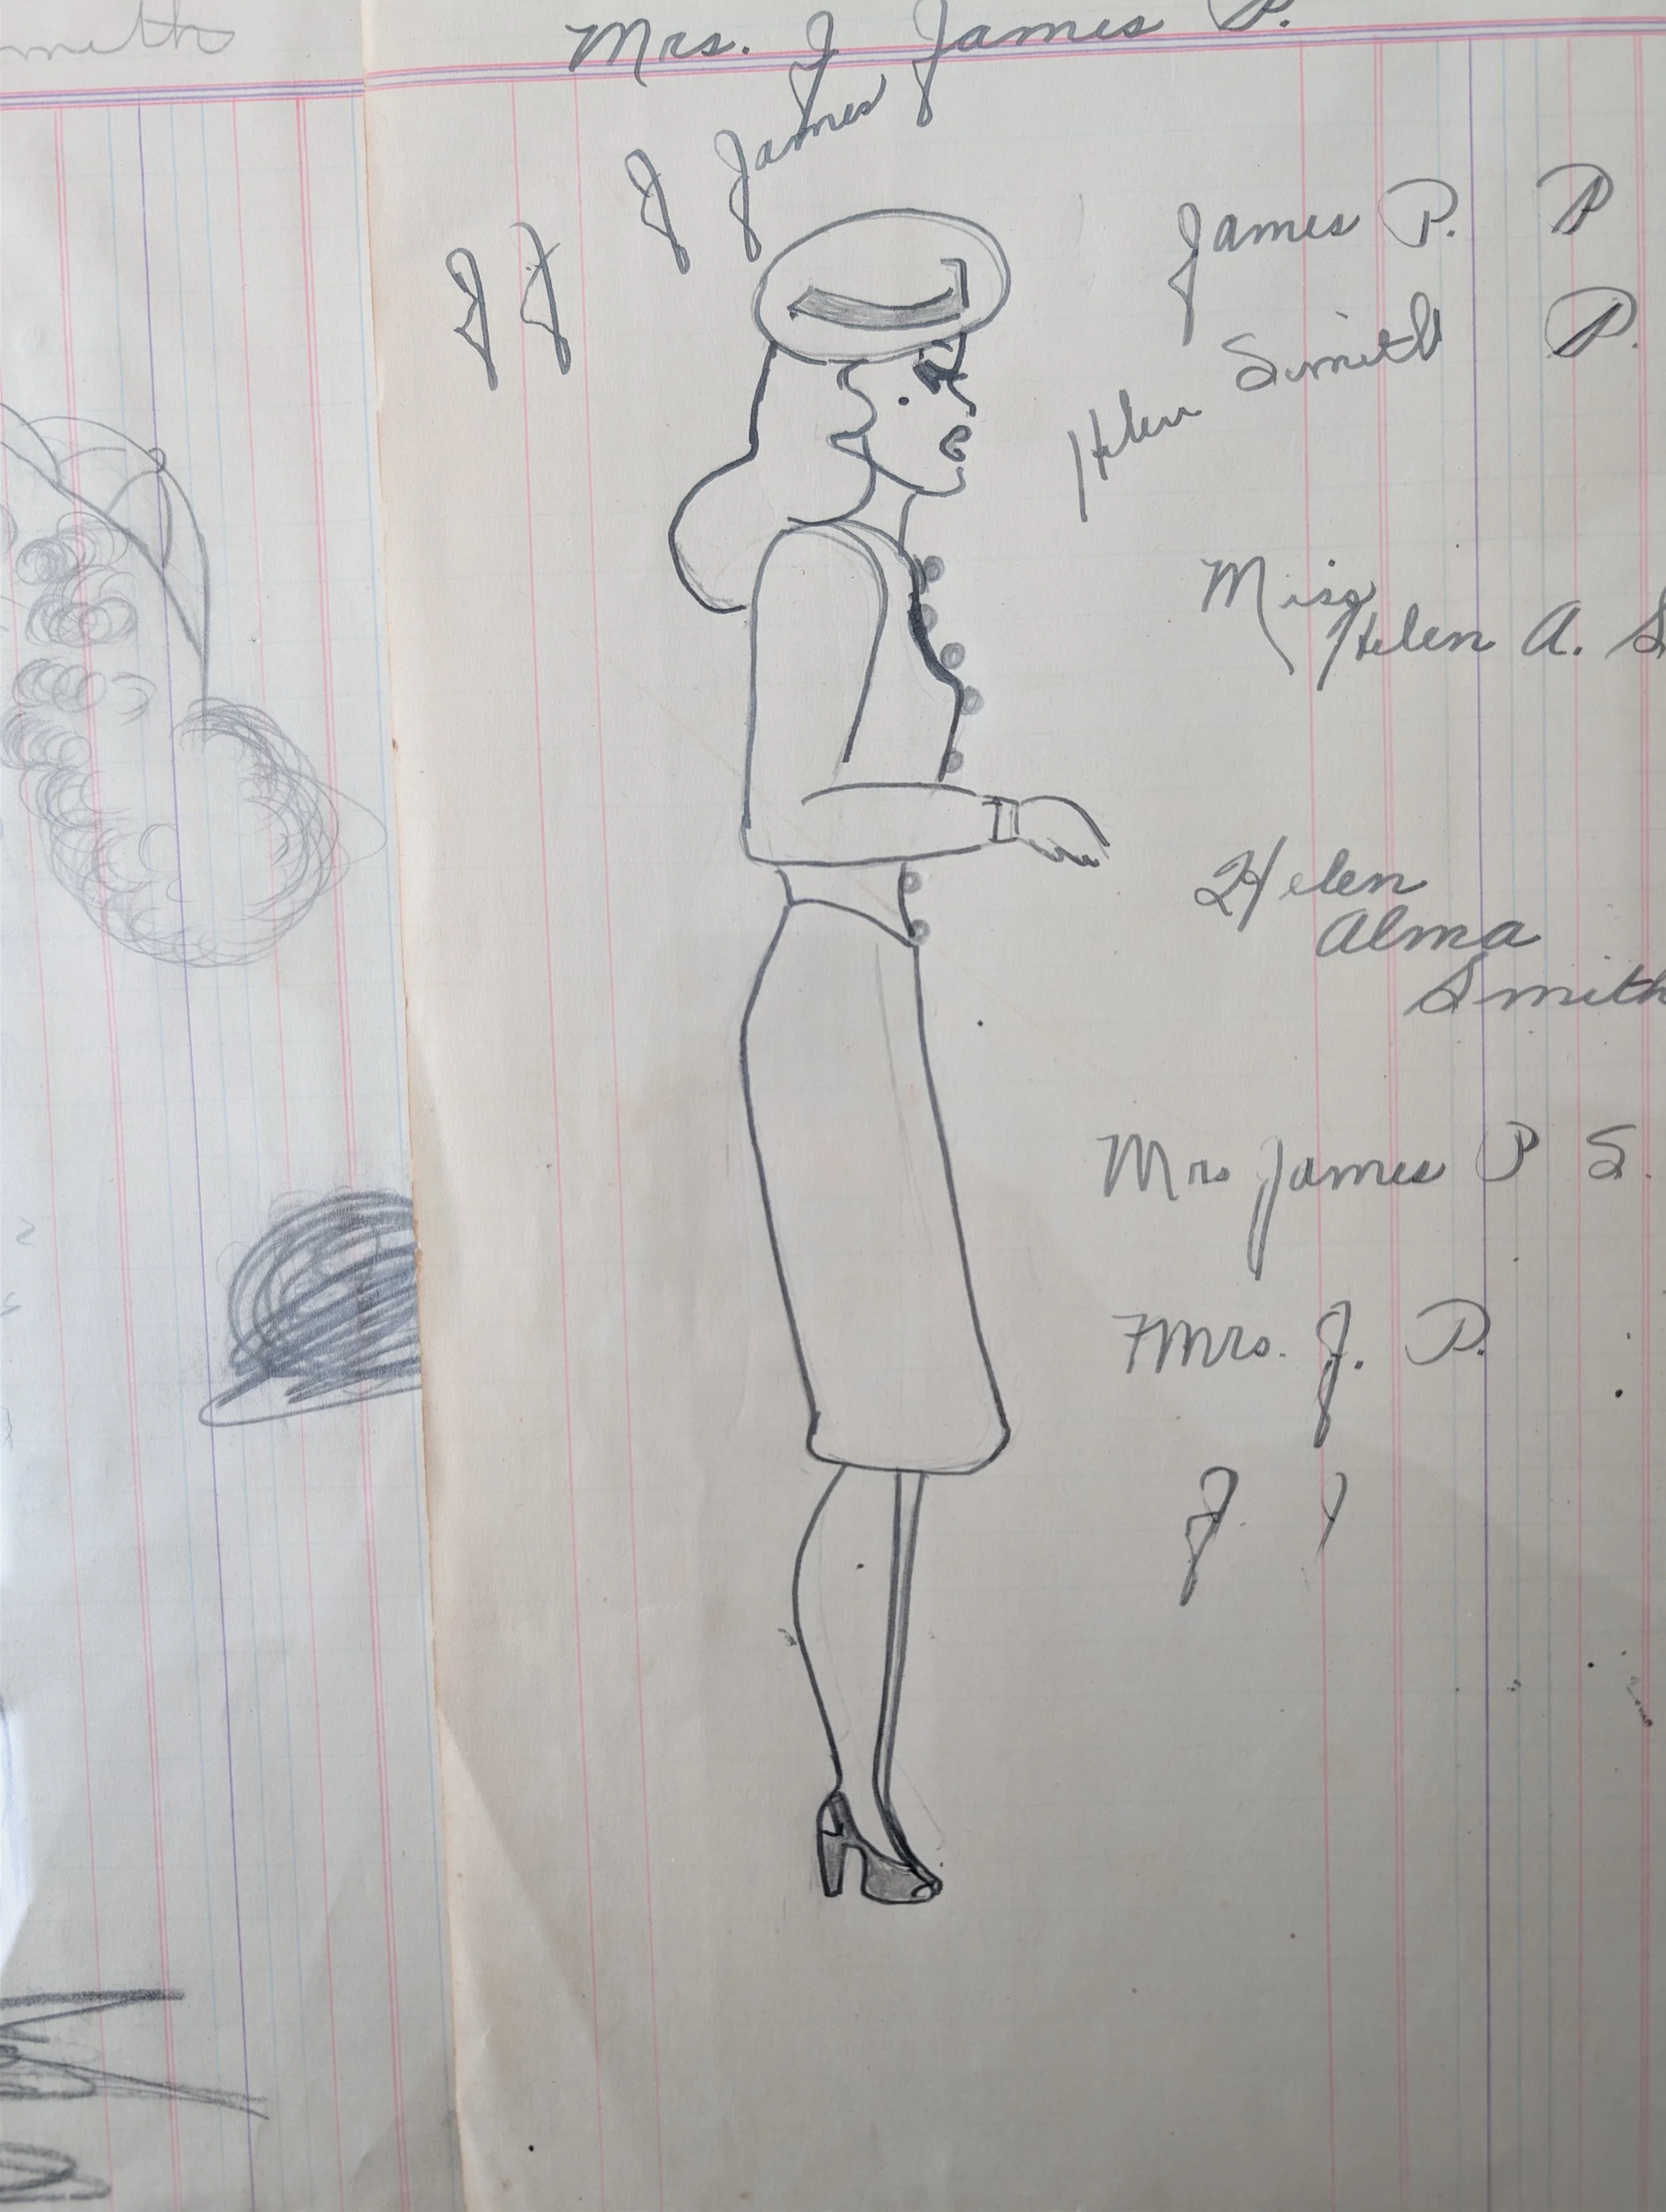 Mrs. J James P.
J James
J J
James P. P
Helen Smith P.
Miss
Helen A. S
Helen
Alma
Smith
Mrs James P S.
Mrs. J. P.
J